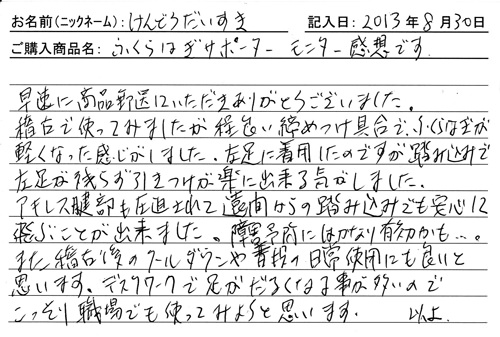 お名前(ニックネーム): けんどうだいすき 記入日: 2013年8月30日
ご購入商品名: ふくらはぎサポーター モニター感想です
早速に商品郵送いただきありがとうございました。
稽古で使ってみましたが程良い締めつけ具合で、ふくらはぎが
軽くなった感じがしました。左足に着用したのですが踏み込みで
左足が残らず引きつけが楽に出来る気がしました。
アキレス腱部も圧迫されて遠間からの踏み込みでも安心に
飛ぶことが出来ました。障害予防にはかなり有効かも…。
また稽古後のクールダウンや普段の日常使用にも良いと
思います。デスクワークで足がだるくなる事が多いので
こっそり職場でも使ってみようと思います。 以上